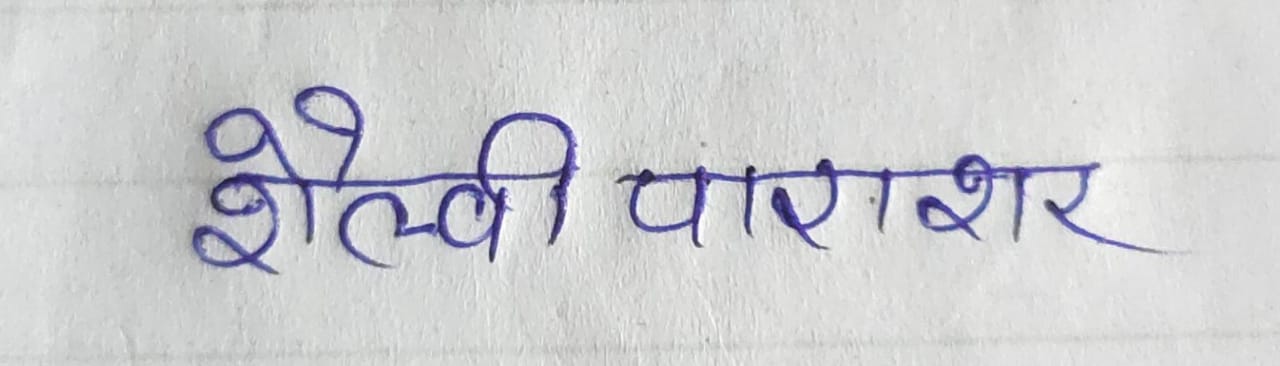 शैल्वी पाराशर